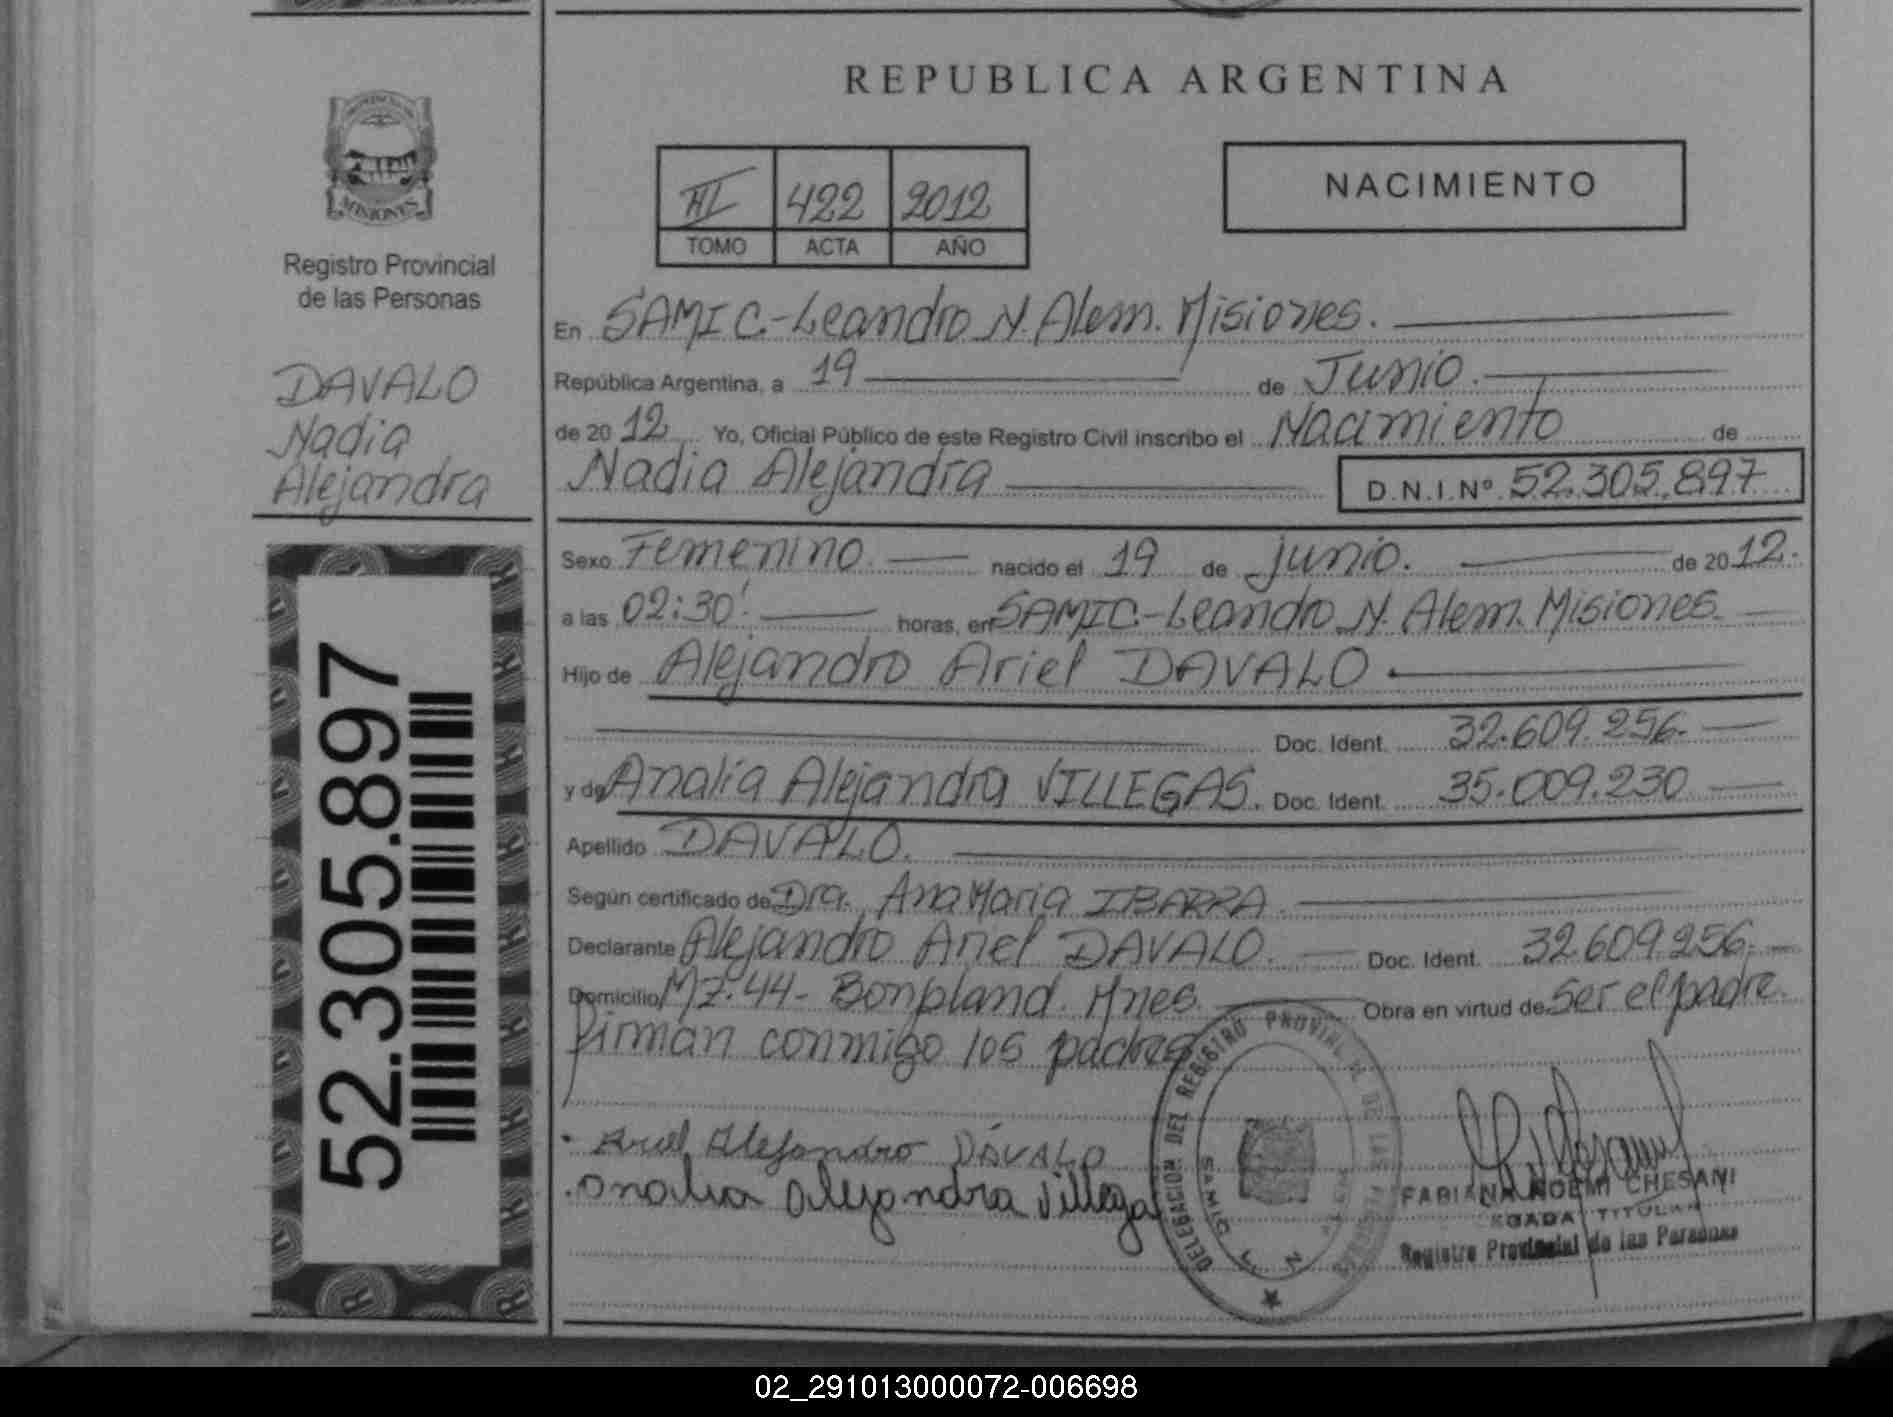 REPUBLICA ARGENTINA
PROVINCIA DE
MISIONES
Registro Provincial
de las Personas
DAVALO
Nadia
Alejandra
52.305.897
III 422 2012
TOMO ACTA AÑO
NACIMIENTO
En SAMIC.-Leandro N. Alem. Misiones.
República Argentina, a 19 de Junio.
de 2012 Yo, Oficial Público de este Registro Civil inscribo el Nacimiento de
Nadia Alejandra D.N.I.Nº 52.305.897
Sexo Femenino. nacido el 19 de junio. de 2012.
a las 02:30' horas, en SAMIC.-Leandro N. Alem. Misiones.
Hijo de Alejandro Ariel DAVALO
Doc. Ident. 32.609.256.
y de Analia Alejandra VILLEGAS. Doc. Ident. 35.009.230
Apellido DAVALO.
Según certificado de Dra. Ana Maria IBARRA.
Declarante Alejandro Ariel DAVALO. Doc. Ident. 32.609.256.
Domicilio Mz. 44 - Bonpland. Mnes. Obra en virtud de Ser el padre.
Firman conmigo los padres
Ariel Alejandro DÁVALO
analia alejandra villega
DELEGACION DEL REGISTRO PROVINCIAL DE LAS PERSONAS
SAMIC
FABIANA NOEMI CHESANI
TITULAR
Registro Provincial de las Personas
02_291013000072-006698